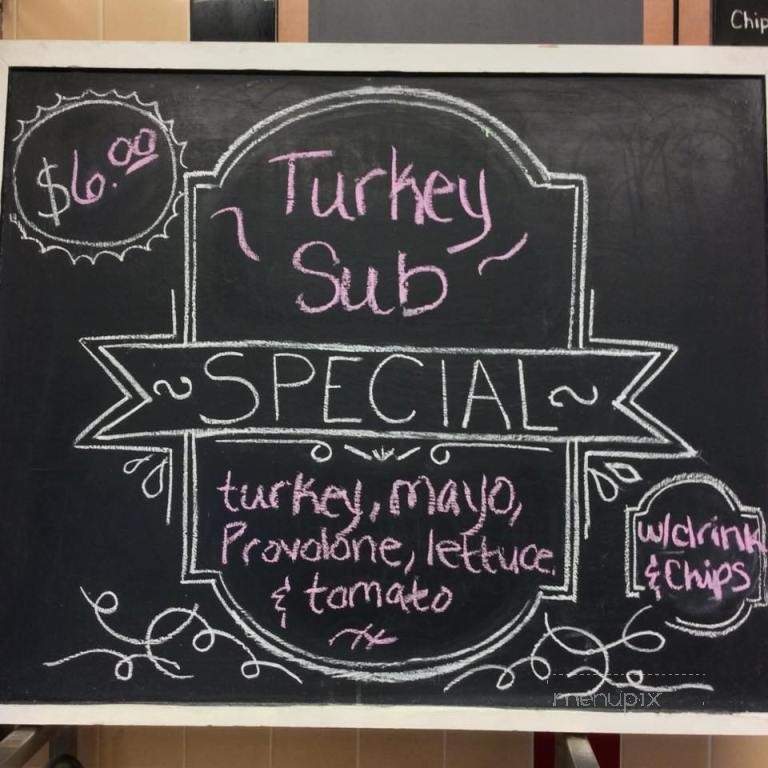 Chip
$6.00
Turkey
Sub
SPECIAL
turkey, mayo,
Provolone, lettuce
& tomato
w/drink
& Chips
menupix